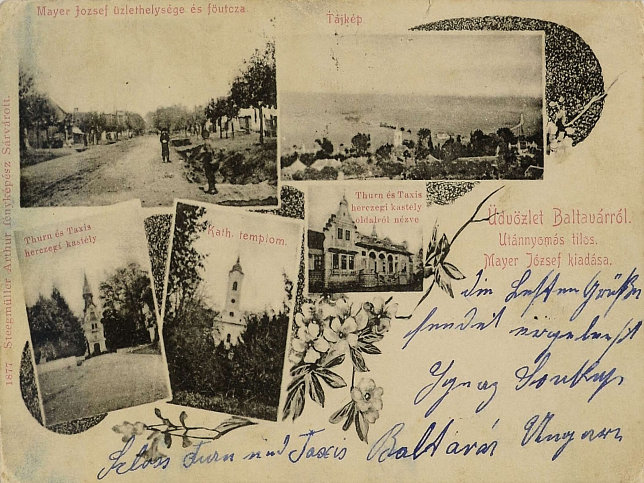 Mayer József üzlethelysége és főutcza.
Tájkép
Thurn és Taxis
herczegi kastély
Kath. templom.
Thurn és Taxis
herczegi kastély
oldalról nézve
Üdvözlet Baltavárról.
Utánnyomás tilos.
Mayer József kiadása.
1877 Steegmüller Arthur fényképész Sárvárott.
die besten Grüße
sendet ergebenst
Ignaz
Schloss Turn und Taxis Baltavár Ungarn